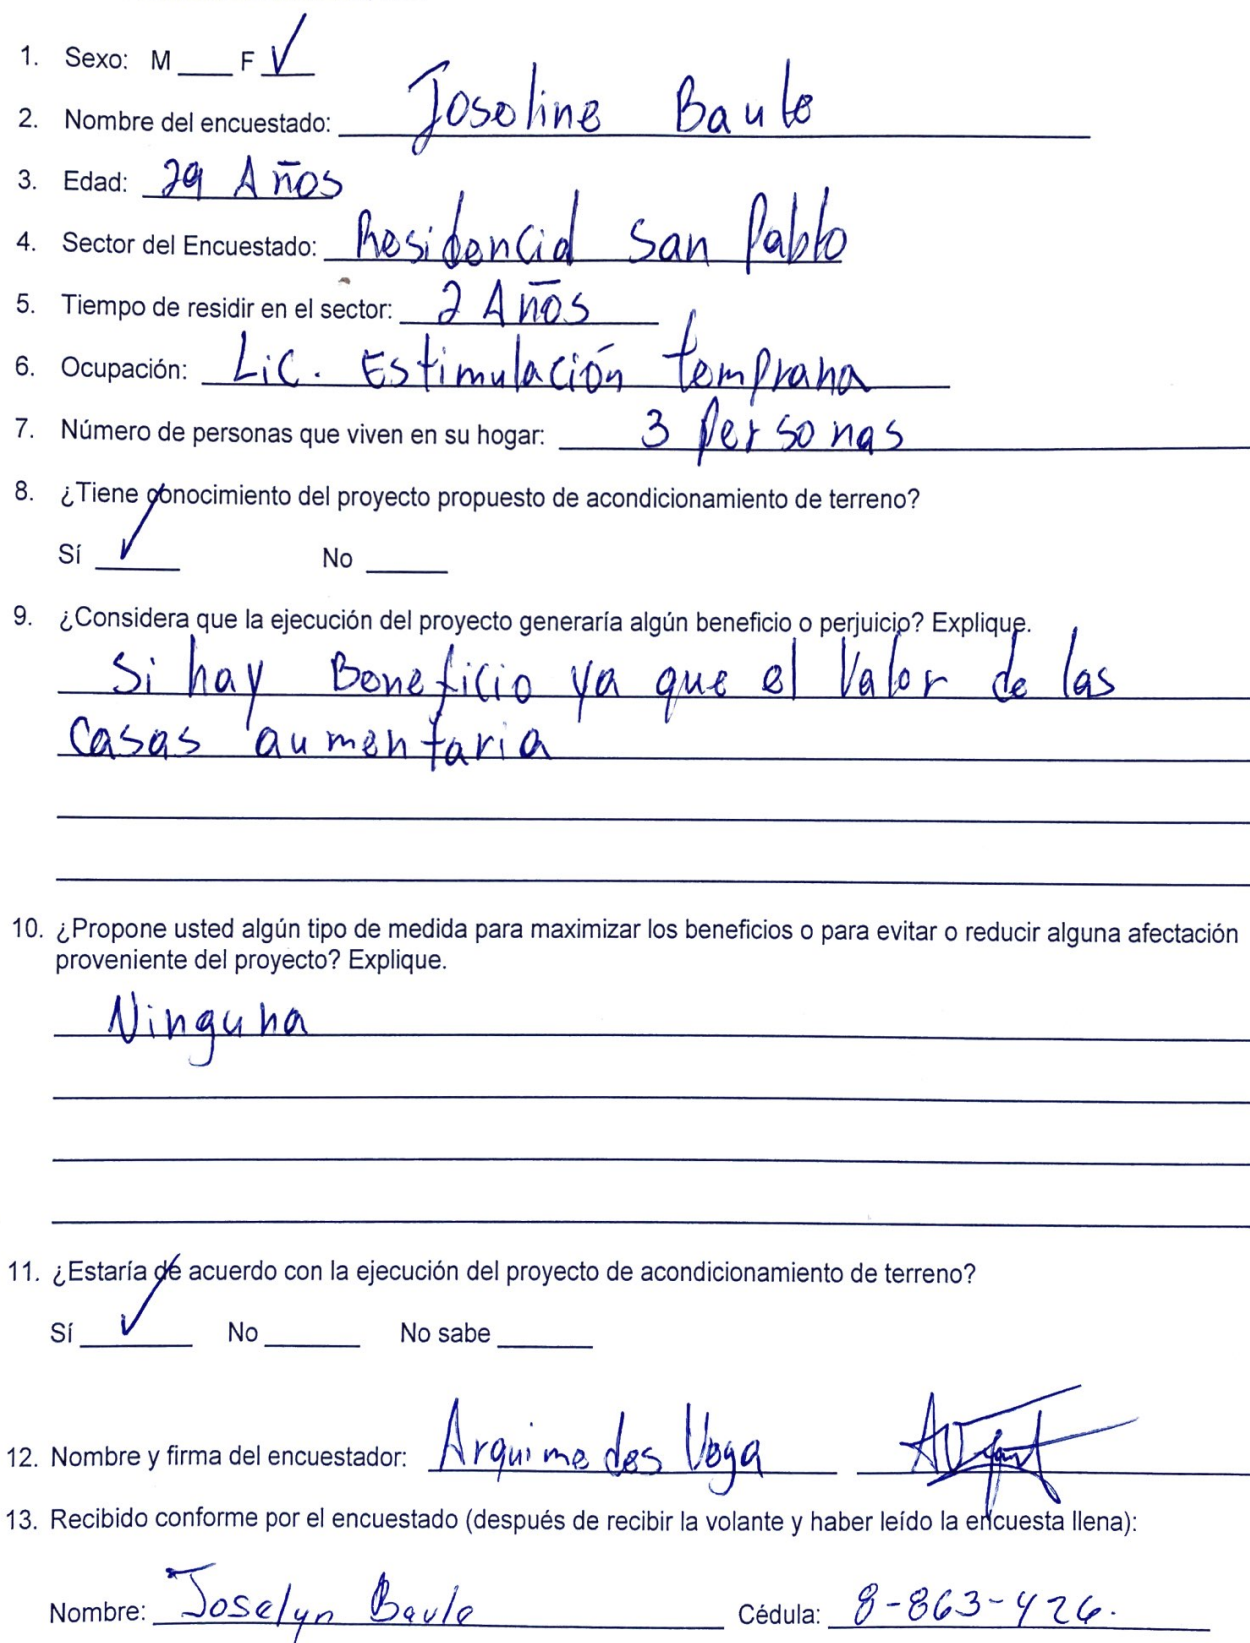 1. Sexo: M ____ F ✓
2. Nombre del encuestado: Joseline Baule
3. Edad: 29 Años
4. Sector del Encuestado: Residencial San Pablo
5. Tiempo de residir en el sector: 2 Años
6. Ocupación: Lic. Estimulación temprana
7. Número de personas que viven en su hogar: 3 Personas
8. ¿Tiene conocimiento del proyecto propuesto de acondicionamiento de terreno?
Sí ✓ No ____
9. ¿Considera que la ejecución del proyecto generaría algún beneficio o perjuicio? Explique.
Si hay Beneficio ya que el Valor de las
casas aumentaria
10. ¿Propone usted algún tipo de medida para maximizar los beneficios o para evitar o reducir alguna afectación
proveniente del proyecto? Explique.
Ninguna
11. ¿Estaría de acuerdo con la ejecución del proyecto de acondicionamiento de terreno?
Sí ✓ No ____ No sabe ____
12. Nombre y firma del encuestador: Arquimedes Vega
13. Recibido conforme por el encuestado (después de recibir la volante y haber leído la encuesta llena):
Nombre: Joselyn Baule Cédula: 8-863-426.